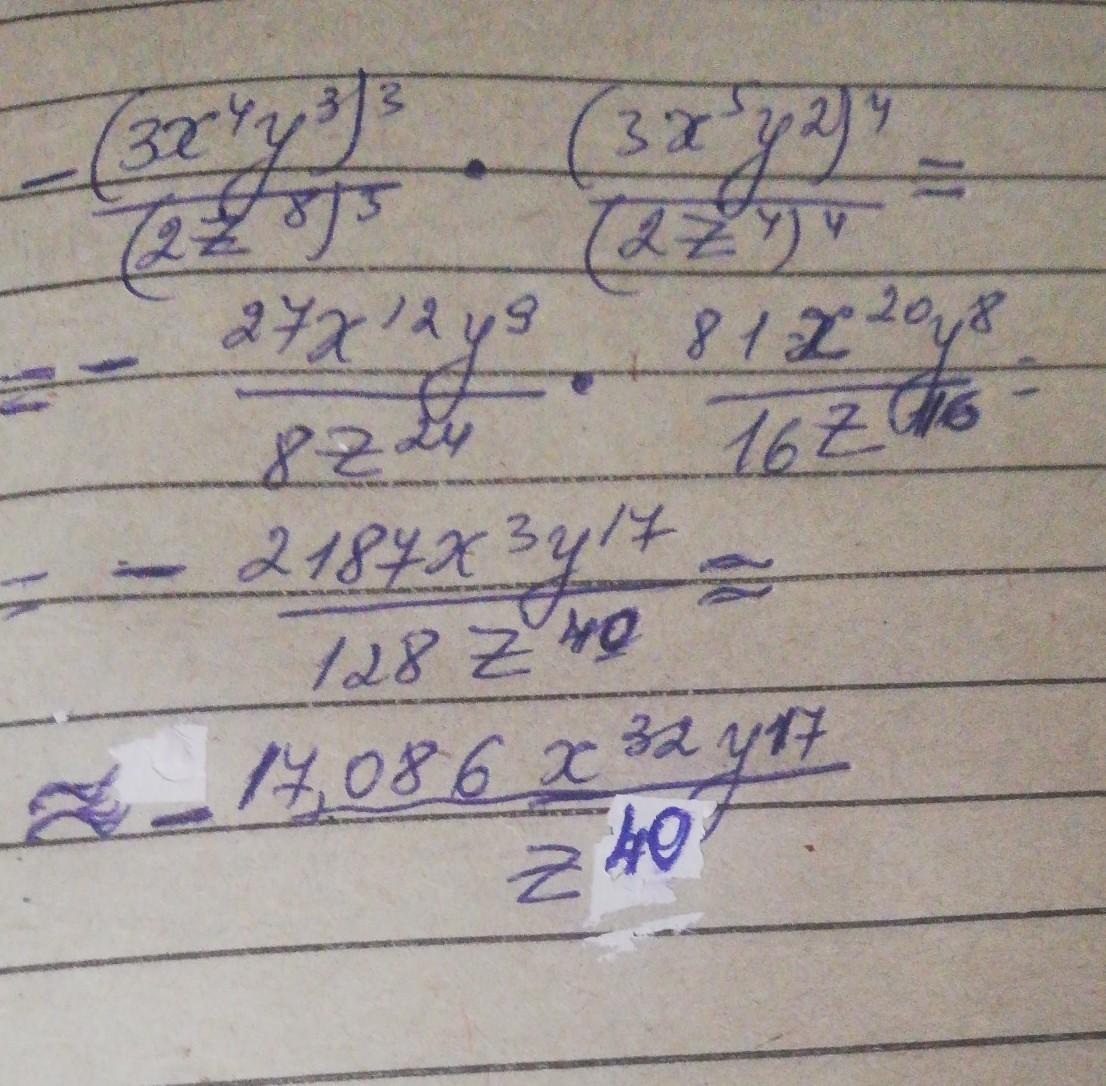 -(3x⁴y³)³/(2z⁸)³ · (3x⁵y²)⁴/(2z⁴)⁴ =
= - 27x¹²y⁹/8z²⁴ · 81x²⁰y⁸/16z¹⁶ =
= - 2187x³y¹⁷/128z⁴⁰ ≈
≈ - 17,086x³²y¹⁷/z⁴⁰